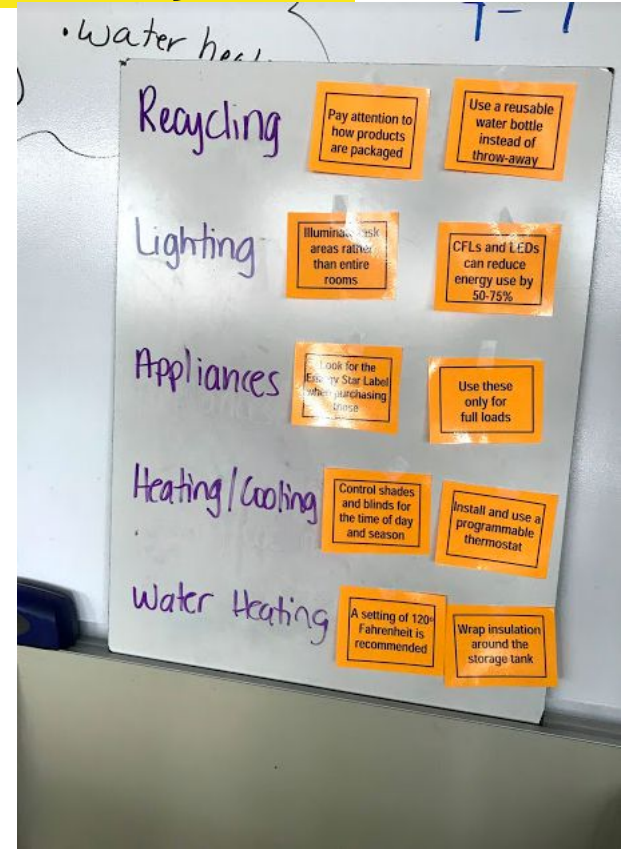 • water
Recycling
Pay attention to
how products
are packaged
Use a reusable
water bottle
instead of
throw-away
Lighting
areas rather
than entire
rooms
CFLs and LEDs
can reduce
energy use by
50-75%
Appliances
Look for the
Energy Star Label
when purchasing
these
Use these
only for
full loads
Heating/Cooling
Control shades
and blinds for
the time of day
and season
Install and use a
programmable
thermostat
Water Heating
A setting of 120°
Fahrenheit is
recommended
Wrap insulation
around the
storage tank